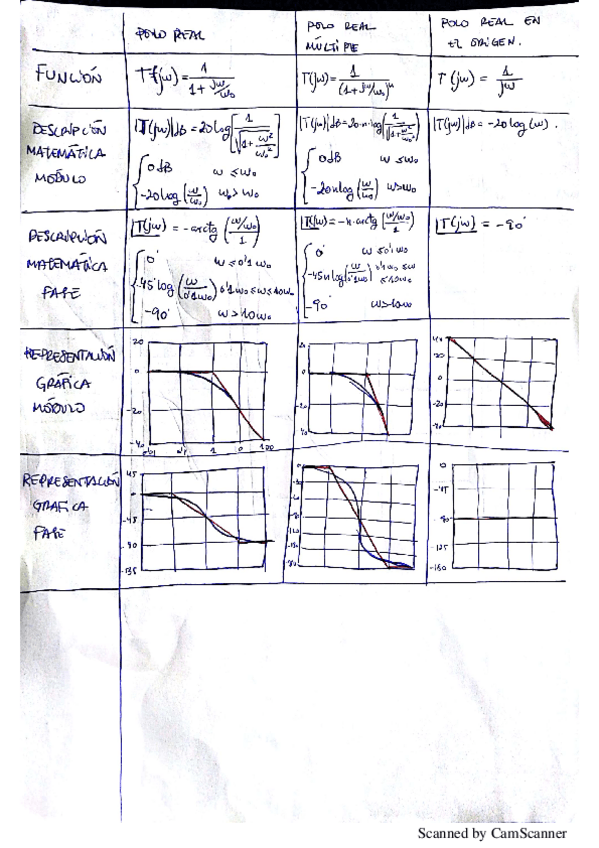 POLO REAL
POLO REAL
MÚLTIPLE
POLO REAL EN
EL ORIGEN.
FUNCIÓN
T(jω) = 1 / (1 + jω/ω₀)
T(jω) = 1 / (1 + jω/ω₀)ⁿ
T(jω) = 1 / jω
DESCRIPCIÓN
MATEMÁTICA
MÓDULO
|T(jω)|dB = 20 log [1 / √(1 + ω²/ω₀²)]
{ 0 dB ω ≤ ω₀
-20 log (ω/ω₀) ω > ω₀
|T(jω)|dB = 20·n·log [1 / √(1 + ω²/ω₀²)]
{ 0 dB ω ≤ ω₀
-20 n log (ω/ω₀) ω > ω₀
|T(jω)|dB = -20 log (ω).
DESCRIPCIÓN
MATEMÁTICA
FASE
|T(jω) = -arctg (ω/ω₀ / 1)
{ 0° ω ≤ 0'1 ω₀
-45 log (ω / 0'1ω₀) 0'1ω₀ ≤ ω ≤ 10ω₀
-90° ω > 10ω₀
|T(jω) = -n·arctg (ω/ω₀ / 1)
{ 0° ω ≤ 0'1 ω₀
-45 n log (ω / 0'1ω₀) 0'1ω₀ ≤ ω ≤ 10ω₀
-90° ω > 10ω
|T(jω) = -90°
REPRESENTACIÓN
GRÁFICA
MÓDULO
20
0
-20
-40
0'01 0'1 1 0 100
20
0
-20
-40
40
20
0
-20
-40
REPRESENTACIÓN
GRAFICA
FASE
45
0
-45
-90
-135
0
0
-45
-90
-135
-180
Scanned by CamScanner